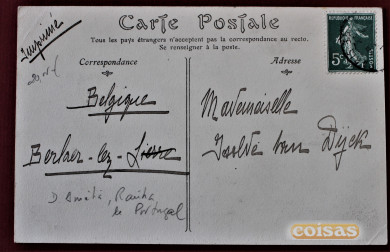 Carte Postale
Tous les pays étrangers n'acceptent pas la correspondance au recto.
Se renseigner à la poste.
Imprimé
Correspondance
Adresse
REPUBLIQUE FRANÇAISE
5c
POSTES
Belgique
Berlaer-lez-Lierre
Mademoiselle
Isolde van Dijck
D Amélia, Rainha
de Portugal
coisas